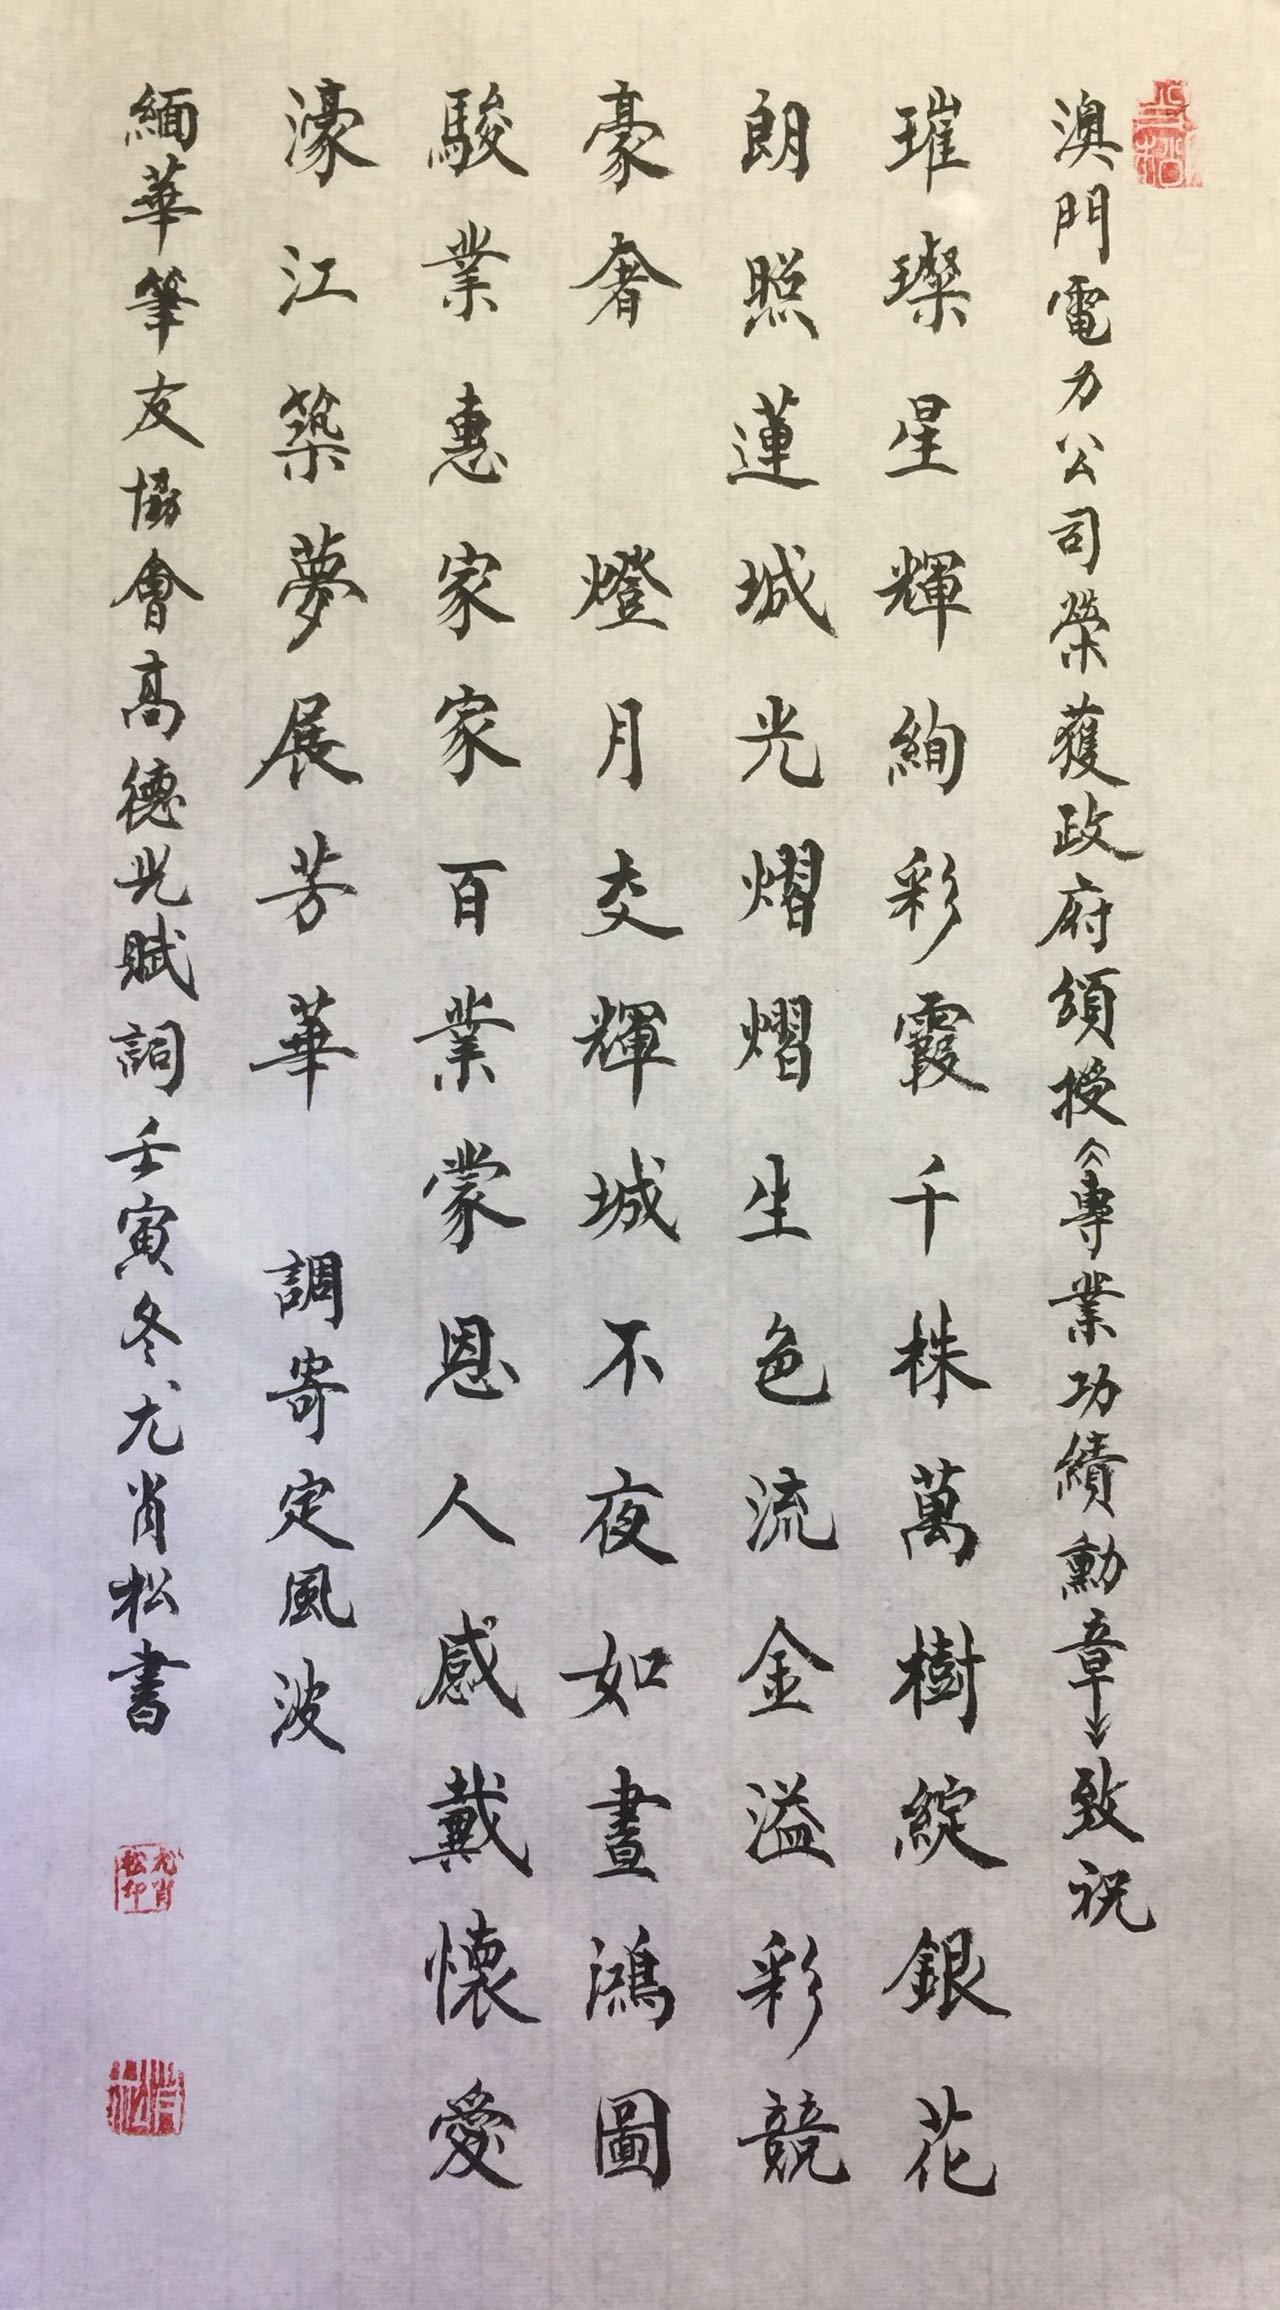 澳門電力公司榮獲政府頒授《專業功績勳章》致祝
璀璨星輝絢彩霞千株萬樹綻銀花
朗照蓮城光熠熠生色流金溢彩競
豪奢 燈月交輝城不夜如晝鴻圖
駿業惠家家百業蒙恩人感戴懷愛
濠江築夢展芳華 調寄定風波
緬華筆友協會高德光賦詞壬寅冬尤肖松書
尤肖松印